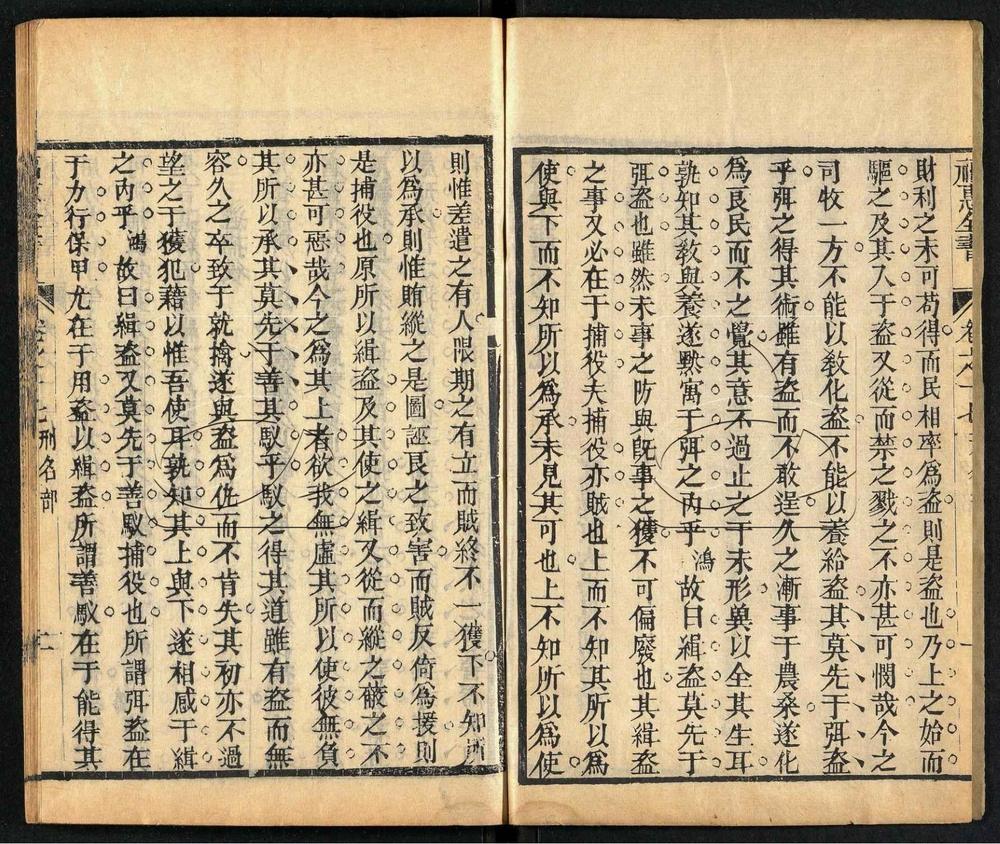 財利之未可苟得而民相率為盗則是盗也乃上之始而
驅之及其入于盗又從而禁之戮之不亦甚可憫哉今之
司牧一方不能以教化盗不能以養給盗其莫先于弭盗
乎弭之得其術雖有盗而不敢逞久之漸事于農桑遂化
為良民而不之覺其意不過止之于未形兾以全其生耳
孰知其教與養遂黙寓于弭之内乎鴻故曰緝盗莫先于
弭盗也雖然未事之防與旣事之獲不可偏廢也其緝盗
之事又必在于捕役夫捕役亦賊也上而不知其所以為
使與下而不知所以為承未見其可也上不知所以為使
則惟差遣之有人限期之有立而賊終不一獲下不知所
以為承則惟賄縱之是圖誣良之致害而賊反倚為援則
是捕役也原所以緝盗及其使之緝又從而縱之蔽之不
亦甚可惡哉今之為其上者欲我無虛其所以使彼無負
其所以承其莫先于善其馭乎馭之得其道雖有盗而無
容久之卒致于就擒遂與盗為仇而不肯失其初亦不過
望之于獲犯藉以惟吾使耳孰知其上與下遂相感于緝
之内乎鴻故曰緝盗又莫先于善馭捕役也所謂弭盗在
于力行保甲尤在于用盗以緝盗所謂善馭在于能得其
刑名部